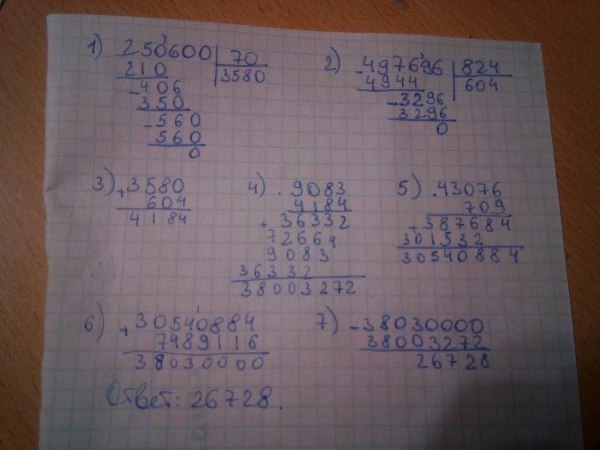 1) 250600 | 70
210 3580
-406
350
-560
560
0
2) -497696 | 824
4944 604
-3296
3296
0
3) +3580
604
4184
4) .9083
4184
+36332
72664
9083
36332
38003272
5) .43076
709
+387684
301532
30540884
6) +30540884
7489116
38030000
7) -38030000
38003272
26728
Ответ: 26728.